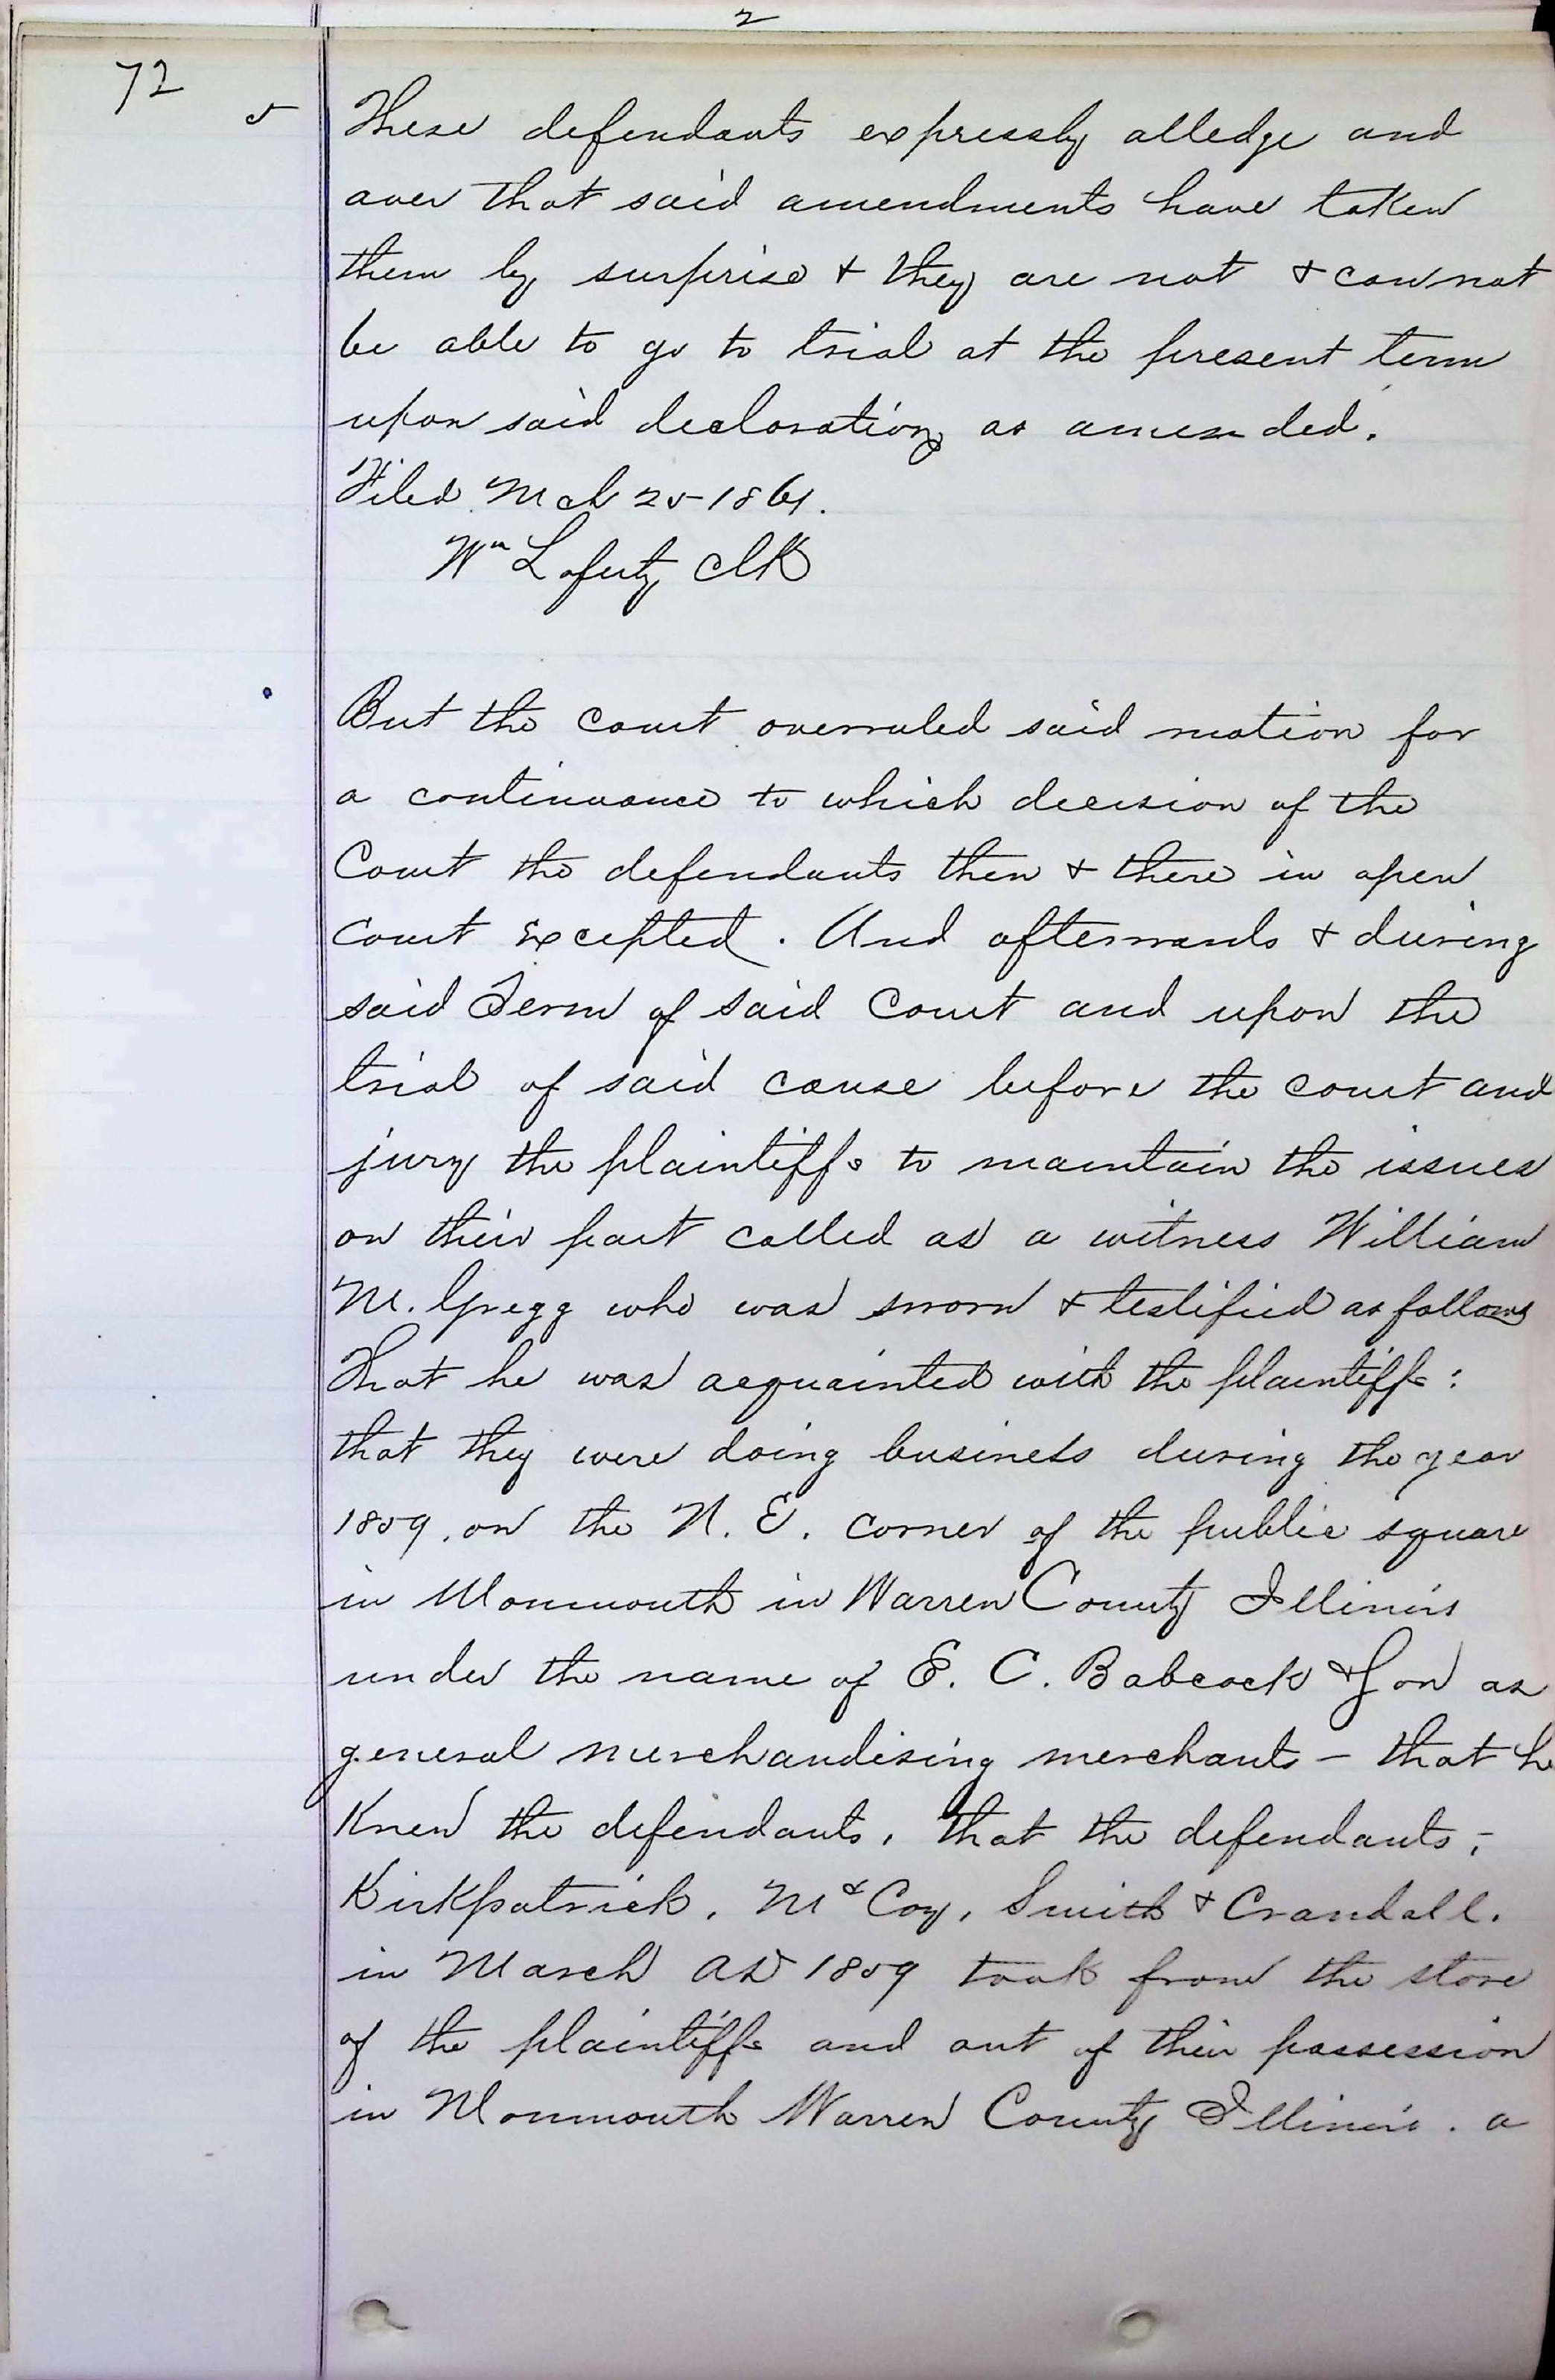 2
72
5 These defendants expressly alledge and
aver that said amendments have taken
them by surprise & they are not & cannot
be able to go to trial at the present term
upon said declaration as amended.
Filed Mch 25 1861.
Wm Laferty Clk
But the Court overruled said motion for
a continuance to which decision of the
Court the defendants then & there in open
Court Excepted. And afterwards & during
said Term of said Court and upon the
trial of said cause before the court and
jury the plaintiffs to maintain the issues
on their part called as a witness William
M. Gregg who was sworn & testified as follows
That he was acquainted with the plaintiffs:
that they were doing business during the year
1859, on the N. E. corner of the public square
in Monmouth in Warren County Illinois
under the name of E. C. Babcock & Son as
general merchandising merchants – that h
Knew the defendants, that the defendants,
Kirkpatrick, McCoy, Smith & Crandall.
in March AD 1859 took from the store
of the plaintiffs and out of their possession
in Monmouth Warren County Illinois. a